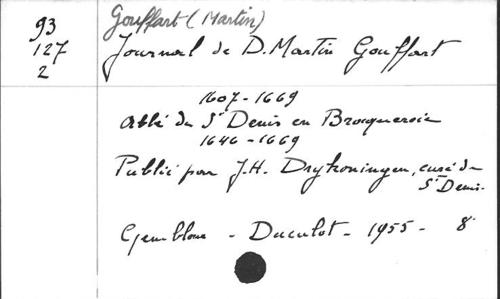 93
127
2
Gouffart (Martin)
Journal de D. Martin Gouffart
1607-1669
abbé de St Denis en Brocqueroie
1646-1669
Publié par J.H. Drykoningen, curé de
St Denis.
Gembloux - Duculot - 1955 - 8°